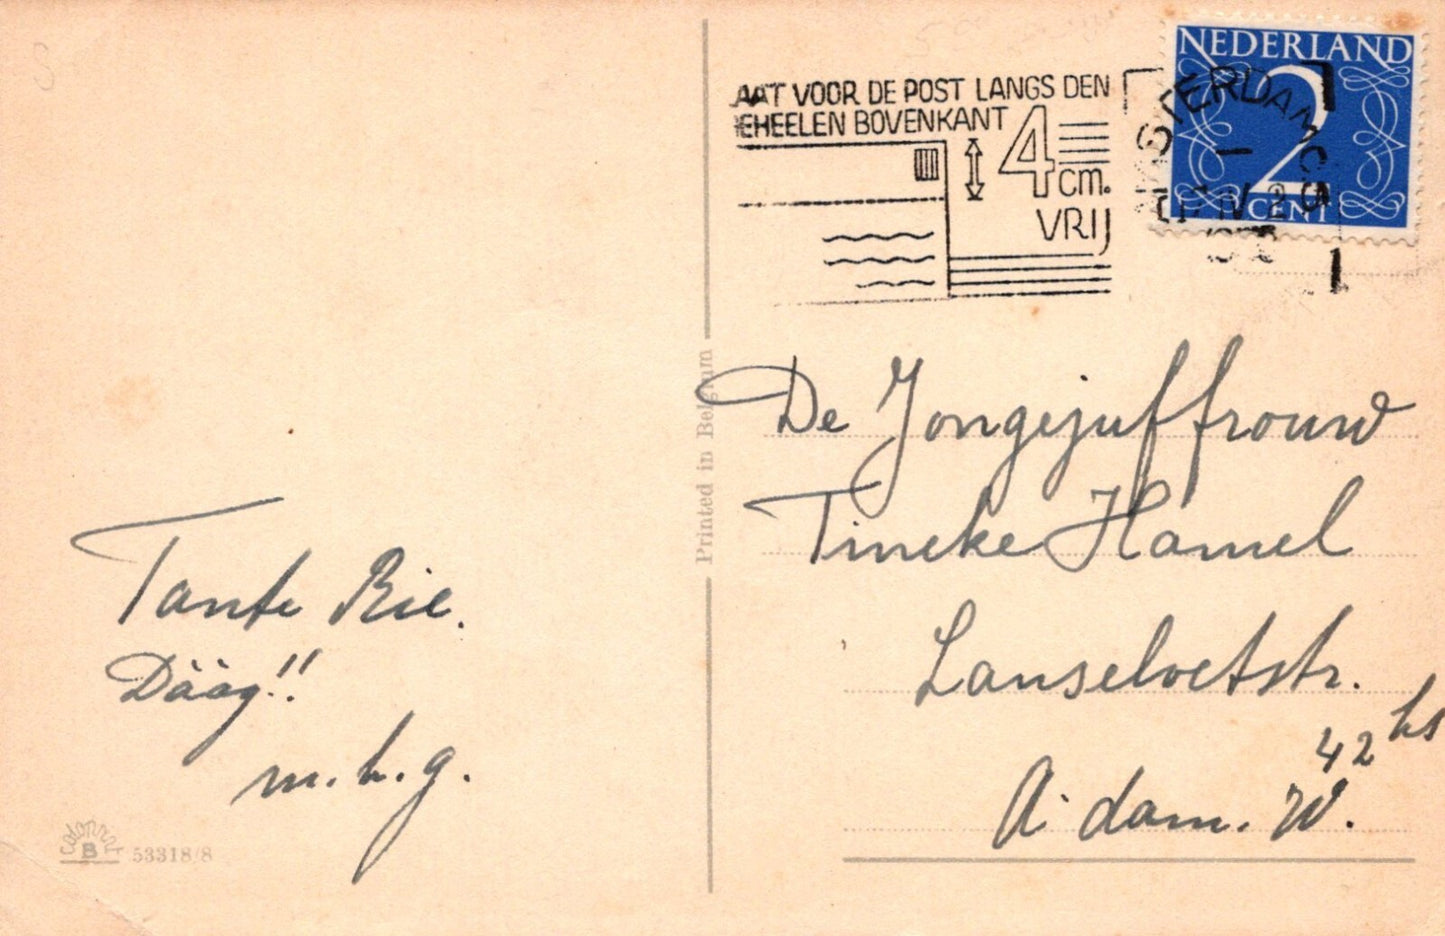 AAT VOOR DE POST LANGS DEN
EHEELEN BOVENKANT
4
cm.
VRIJ
NEDERLAND
2
CENT
AMSTERDAM C.S
Printed in Belgium
De Jongejuffrouw
Tineke Hamel
Lanseloetstr.
42 hs
A'dam. W.
Tante Rie.
Dääg!!
m.h.g.
colorprint
B
53318/8